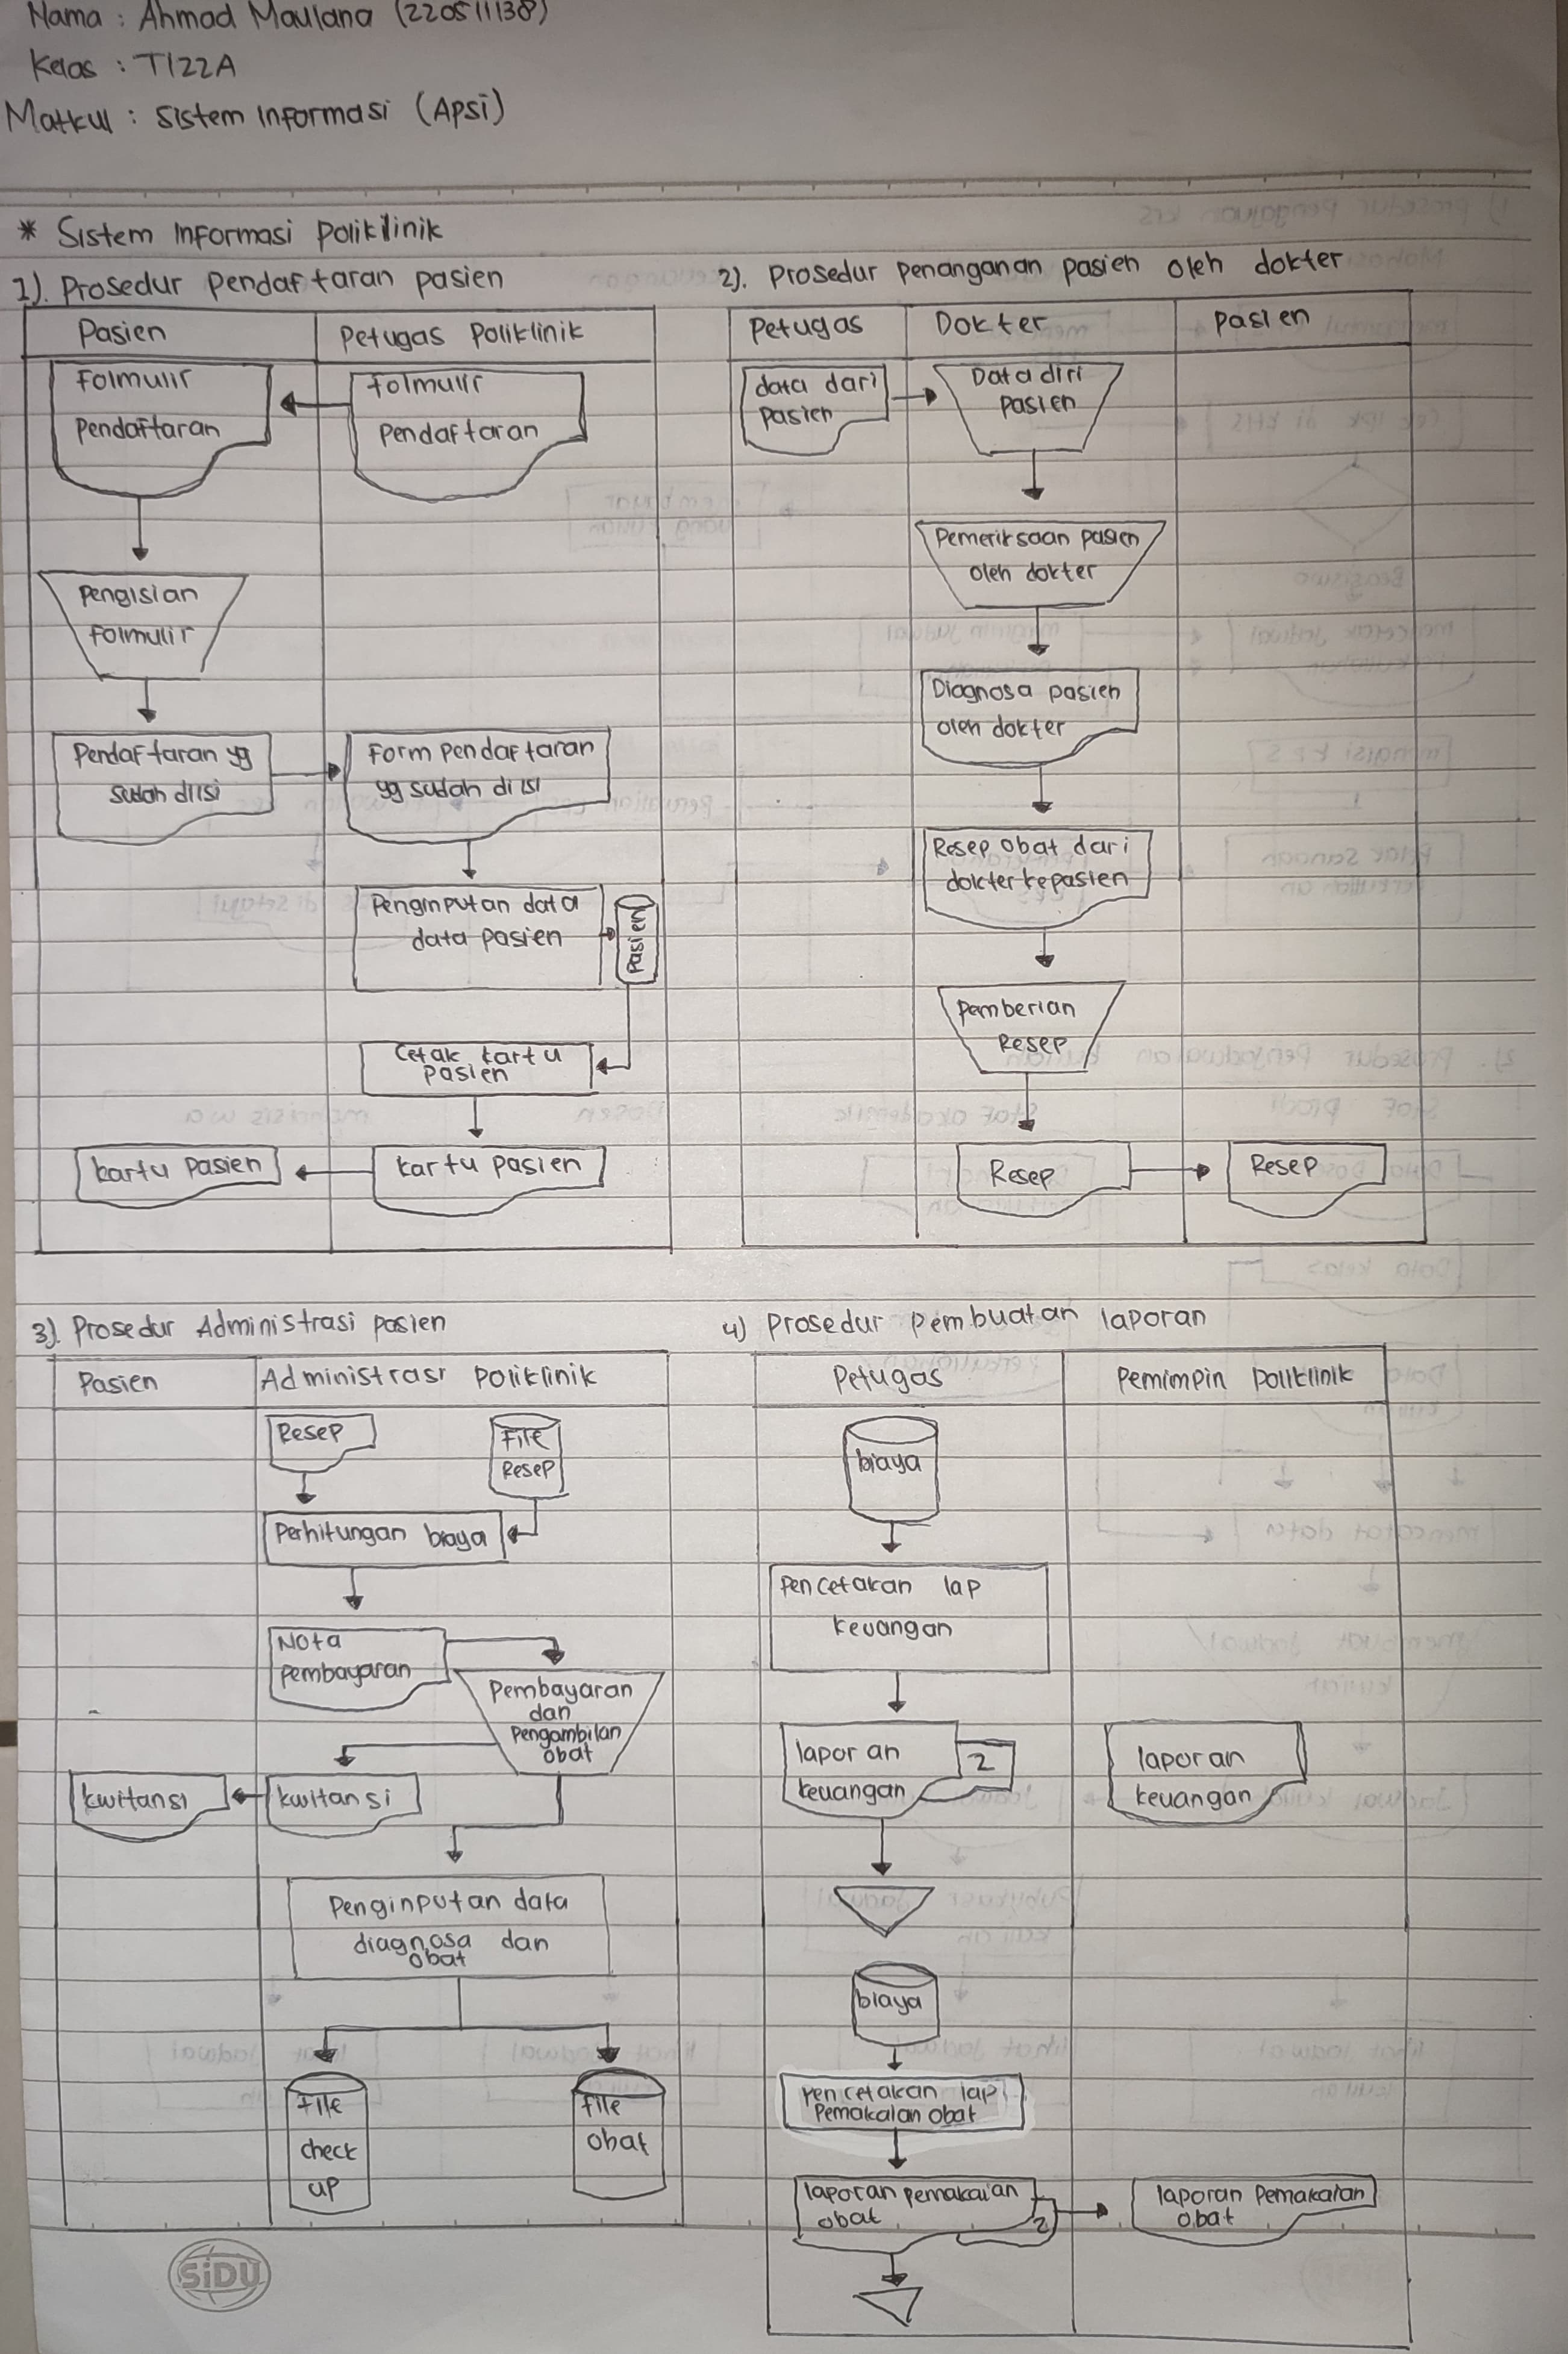 Nama : Ahmad Maulana (220511138)
Kelas : TI22A
Matkul : Sistem Informasi (Apsi)
* Sistem Informasi Poliklinik
1). Prosedur Pendaftaran pasien
Pasien
Petugas Poliklinik
Folmulir
Pendaftaran
Folmulir
Pendaftaran
Pengisian
Folmulir
Pendaftaran yg
sudah diisi
Form pendaftaran
yg sudah diisi
Penginputan data
data pasien
Pasien
Cetak kartu
pasien
kartu pasien
kartu pasien
2). Prosedur penanganan pasien oleh dokter
Petugas
Dokter
Pasien
data dari
pasien
Data diri
pasien
Pemeriksaan pasien
oleh dokter
Diagnosa pasien
oleh dokter
Resep obat dari
dokter kepasien
Pemberian
Resep
Resep
Resep
3). Prosedur Administrasi pasien
Pasien
Administrasi Poliklinik
Resep
File
Resep
Perhitungan biaya
Nota
pembayaran
Pembayaran
dan
Pengambilan
obat
kwitansi
kwitansi
Penginputan data
diagnosa dan
obat
File
check
up
File
obat
4) Prosedur Pembuatan laporan
Petugas
Pemimpin Poliklinik
biaya
Pencetakan lap
keuangan
laporan
keuangan
2
laporan
keuangan
biaya
Pencetakan lap
Pemakaian obat
laporan pemakaian
obat
2
laporan Pemakaian
obat
SiDU